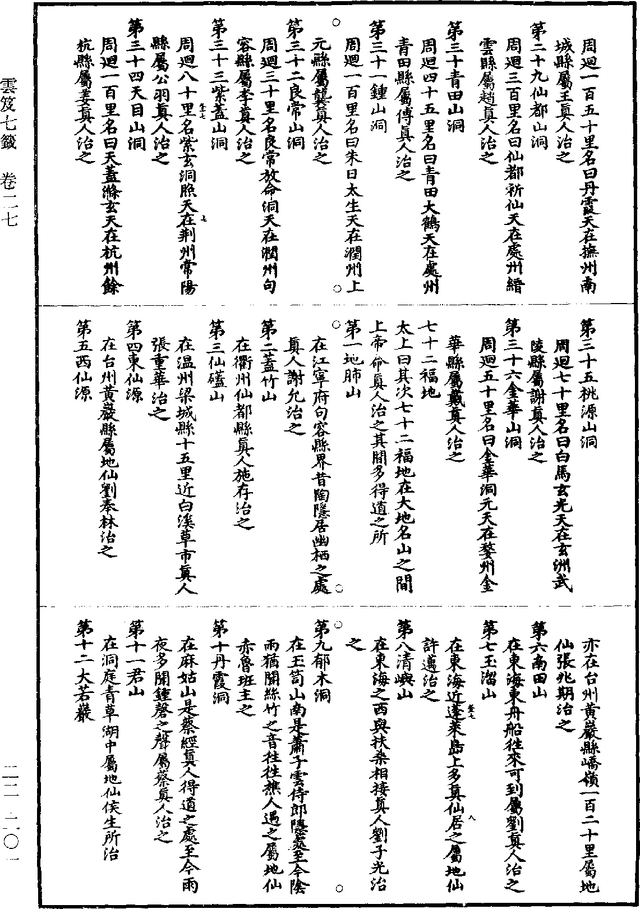 周迴一百五十里名曰丹霞天在撫州南
城縣屬王真人治之
第二十九仙都山洞
周迴三百里名曰仙都祈仙天在處州縉
雲縣屬趙真人治之
第三十青田山洞
周迴四十五里名曰青田大鶴天在處州
青田縣屬傅真人治之
第三十一鍾山洞
周迴一百里名曰朱日太生天在潤州上
元縣屬龔真人治之
第三十二良常山洞
周迴三十里名良常放命洞天在潤州句
容縣屬李真人治之
第三十三紫蓋山洞
周迴八十里名紫玄洞照天在荆州常陽
縣屬公羽真人治之
第三十四天目山洞
周迴一百里名曰天蓋滌玄天在杭州餘
杭縣屬姜真人治之
第三十五桃源山洞
周迴七十里名曰白馬玄光天在玄洲武
陵縣屬謝真人治之
第三十六金華山洞
周迴五十里名曰金華洞元天在婺州金
華縣屬戴真人治之
七十二福地
太上曰其次七十二福地在大地名山之間
上帝命真人治之其間多得道之所
第一地肺山
在江寧府句容縣界昔陶隱居幽栖之處
真人謝允治之
第二蓋竹山
在衢州仙都縣真人施存治之
第三仙磕山
在温州梁城縣十五里近白溪草市真人
張重華治之
第四東仙源
在台州黃巖縣屬地仙劉奉林治之
第五西仙源
亦在台州黃巖縣嶠嶺一百二十里屬地
仙張兆期治之
第六南田山
在東海東舟船往來可到屬劉真人治之
第七玉溜山
在東海近蓬萊島上多真仙居之屬地仙
許邁治之
第八清嶼山
在東海之西與扶桑相接真人劉子光治
之
第九郁木洞
在玉笥山南是蕭子雲侍郎隱處至今陰
雨猶聞絲竹之音往往樵人遇之屬地仙
赤魯班主之
第十丹霞洞
在麻姑山是蔡經真人得道之處至今雨
夜多聞鍾磬之聲屬蔡真人治之
第十一君山
在洞庭青草湖中屬地仙侯生所治
第十二大若巖
雲笈七籤 卷二七
二二-二〇一